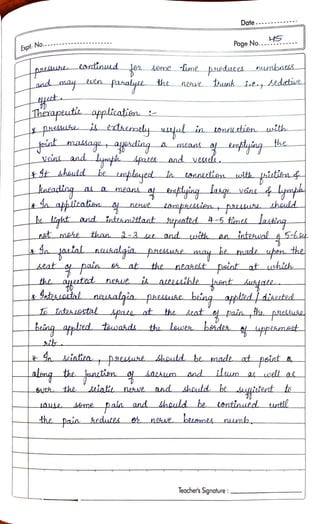 Date
Expt. No.
Page No. 45
pressure continued for some time produces numbness
and may even paralyse the nerve trunk i.e., sedative
effect.
Therapeutic application :-
* pressure is extremely useful in connection with
joint massage, affording a means of emptying the
veins and lymph spaces and vessels.
* It should be employed in connection with friction &
kneading as a means of emptying large veins & lymph
* In application of nerve compression, pressure should
be light and intermittant repeated 4-5 times lasting
not more than 2-3 sec and with an interval of 5-6 sec
* In facial neuralgia pressure may be made upon the
seat of pain or at the nearest point at which
the affected nerve is accessible front surface.
* Intercostal neuralgia pressure being applied / directed
To intercostal space at the seat of pain, the pressure
being applied towards the lower border of uppermost
rib.
* In sciatica, pressure should be made at point a
along the junction of sacrum and ilium as well as
over the sciatic nerve and should be sufficient to
cause some pain and should be continued until
the pain reduces or nerve becomes numb.
Teacher's Signature :